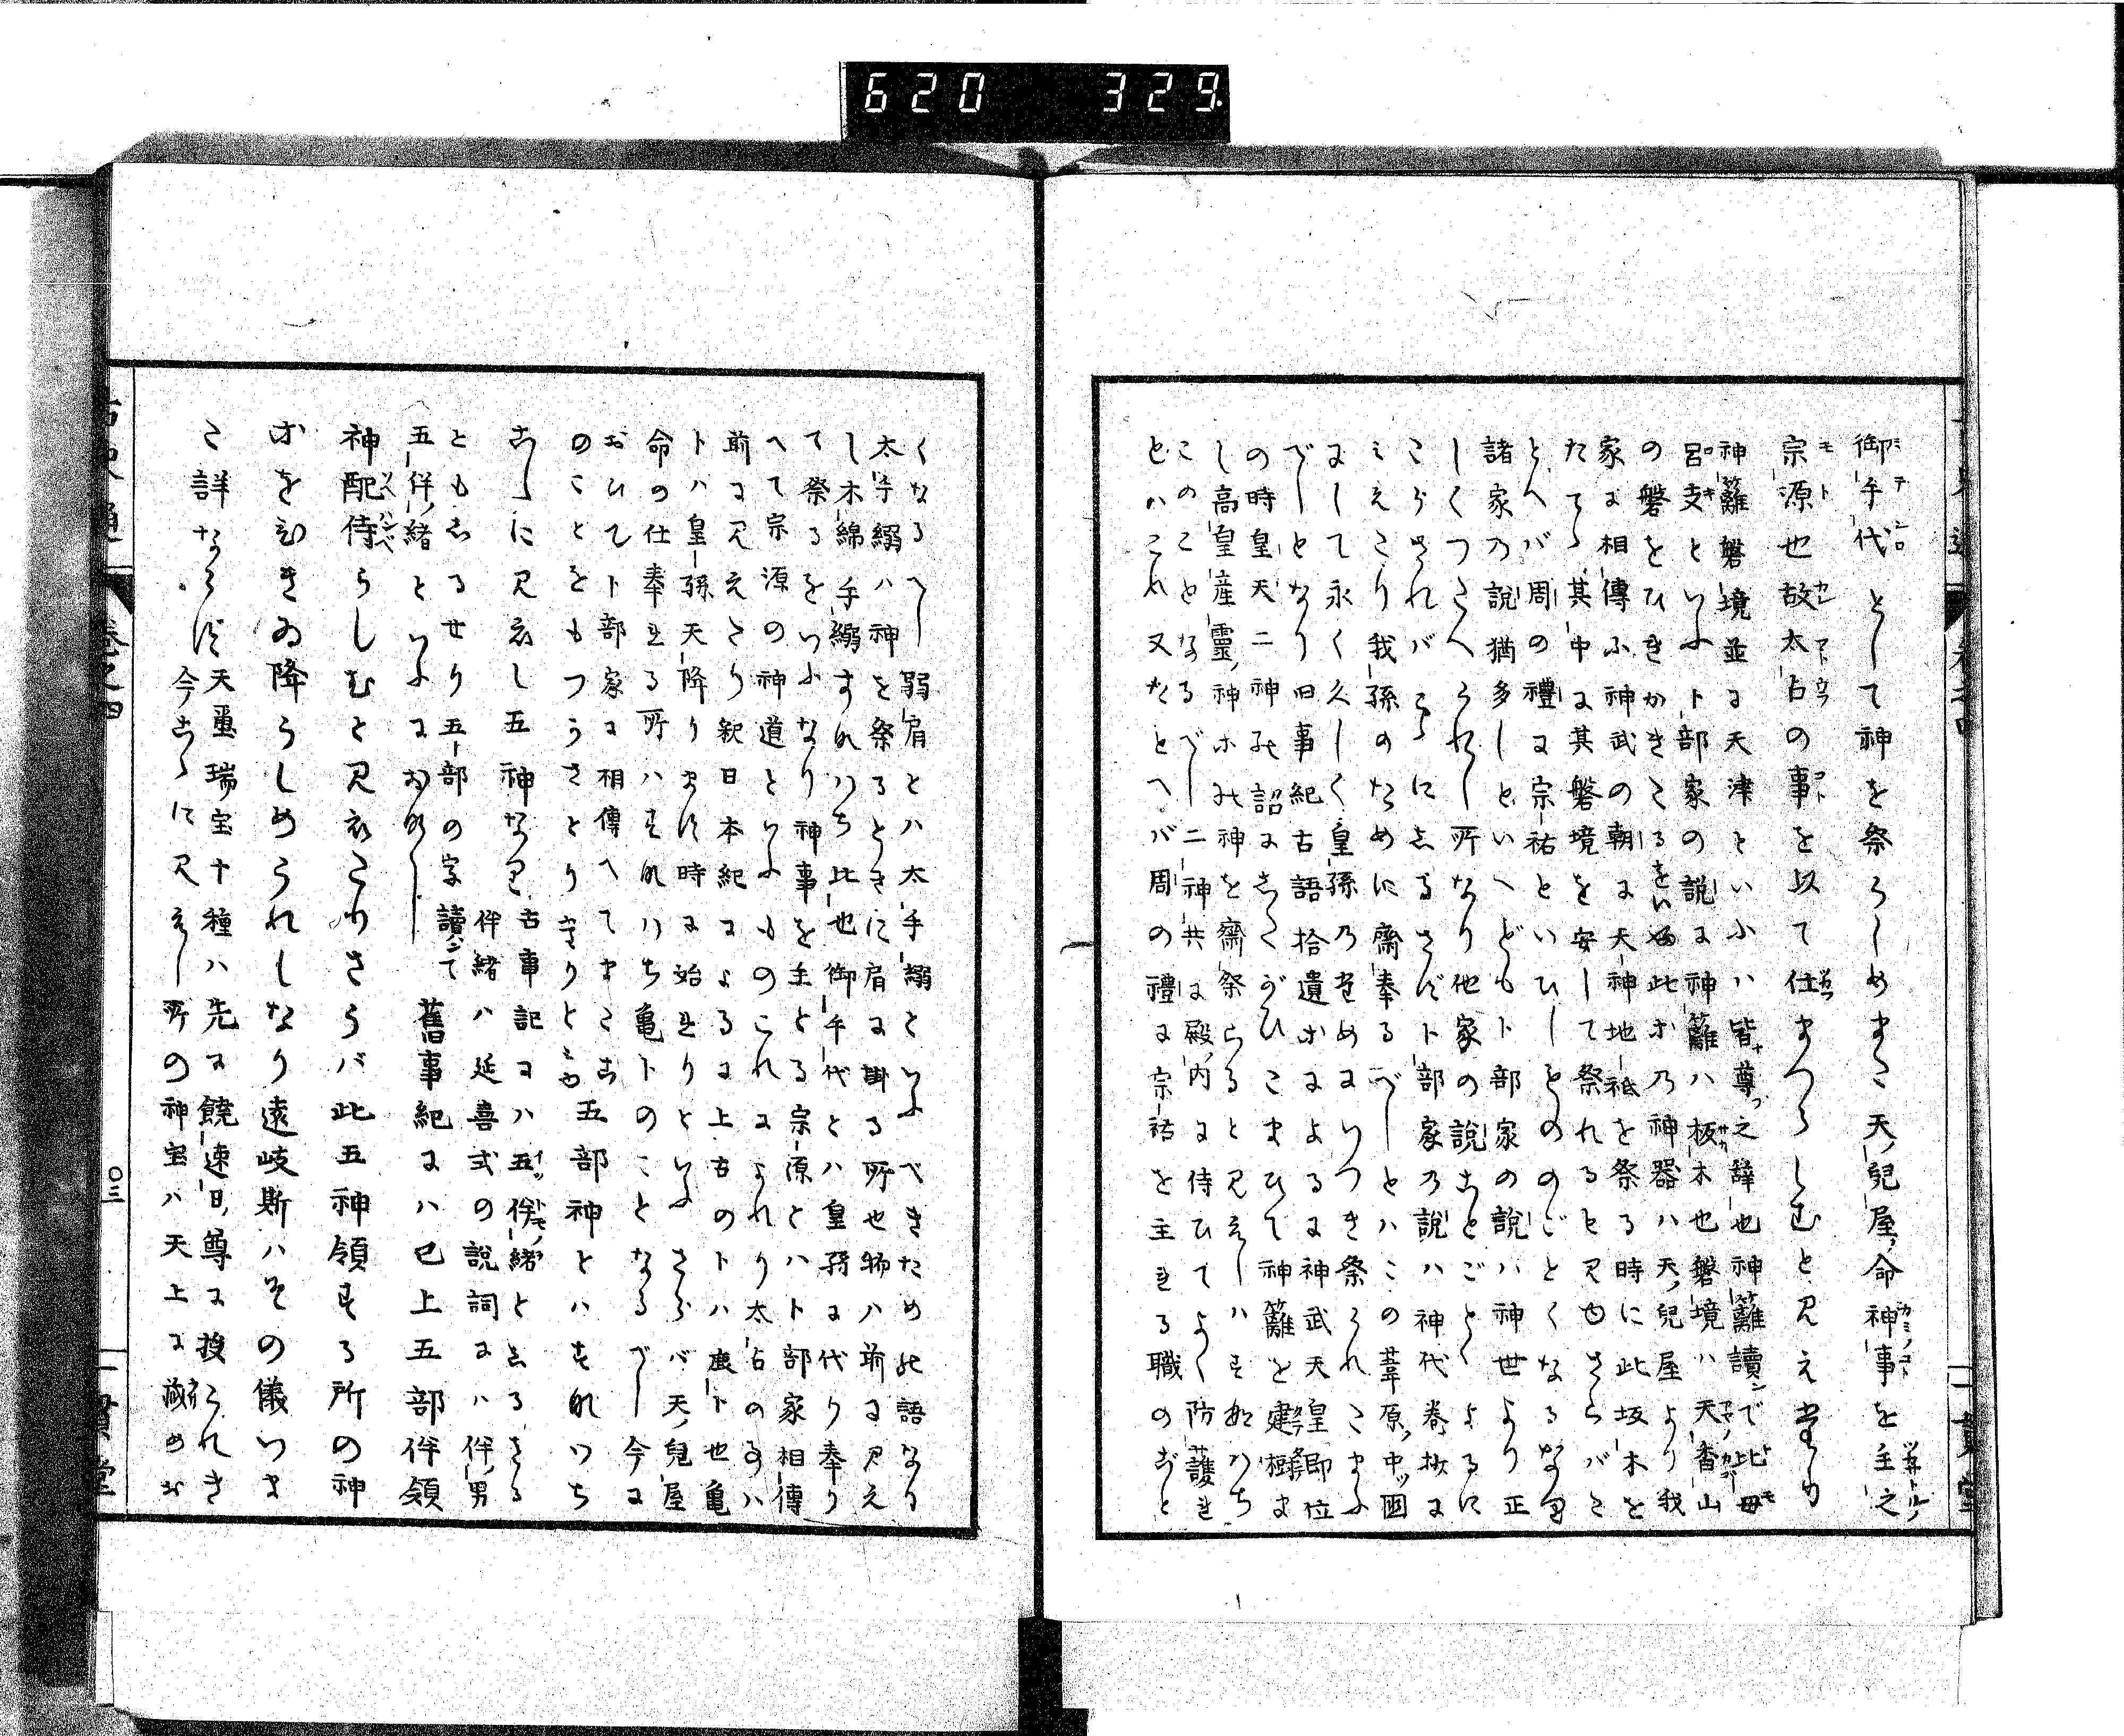 620 329
御手代として神を祭らしめまた天ノ兒屋ノ命神事を主之
宗源也故太占の事を以て仕まつらしむと見えたり
神籬磐境並に天津といふハ皆尊之辞也神籬讀ンで比母
呂支といふ卜部家の説に神籬ハ板木也磐境ハ天ノ香山
の磐をひきかきたるをいふ此等乃神器ハ天ノ兒屋より我
家に相傳ふ神武の朝に天神地祇を祭る時に此坂木を
たてゝ其中に其磐境を安して祭れると見ゆさらバた
とへバ周の禮に宗祐といひしものゝごとくなるなり
諸家の説猶多しといへども卜部家の説ハ神世より正
しくつたへられし所なり他家の説ことごとくよるに
こゝされバこゝにしるさず卜部家乃説ハ神代巻抜に
みえたり我孫のために齋奉るべしとハこの葦原ノ中ッ國
にして永く久しく皇孫乃ためにいつき祭られたまふ
べしとなり旧事紀古語拾遺等によるに神武天皇即位
の時皇天二神の詔にしたがひたまひて神籬を建樹ま
し高皇産靈ノ神等の神を齋祭らると見えしハすなハち
このことなるべし二神共に殿ノ内に侍ひてよく防護き
とハこれ又たとへバ周の禮に宗祐を主れる職のごと
くなるへし弱肩とハ太手繦といふべきための語なり
太手繦ハ神を祭るときに肩に掛る所也物ハ前に見え
し木綿手繦すなハち比也御手代とハ皇孫に代り奉り
て祭るをいふなり神事を主とる宗源とハ卜部家相傳
へて宗源の神道といふものこれによれり太占の事ハ
前に見えたり釈日本紀によるに上古の卜ハ鹿卜也亀
卜ハ皇孫天降ります時に始れりといふさらバ天ノ兒屋
命の仕奉れる所ハすなハち亀卜のことなるべし今に
おひて卜部家に相傳へてまたこ
のことをもつうさとり守りといふ五部神とハすなハち
こゝに見えし五神なり古事記にハ五伴緒としるせる
伴緒ハ延喜式の説詞にハ伴ノ男
ともしるせり五部の字讀ンて
五伴ノ緒といふにおなし舊事紀にハ已上五部伴領
神配侍らしむと見えたりさらバ此五神領する所の神
等をひきゐ降らしめられしなり遠岐斯ハその儀いま
た詳ならず天璽瑞宝十種ハ先に饒速日ノ尊に授られき
今こゝに見えし所の神宝ハ天上に蔵めお
巻之四
〇三
一貫堂